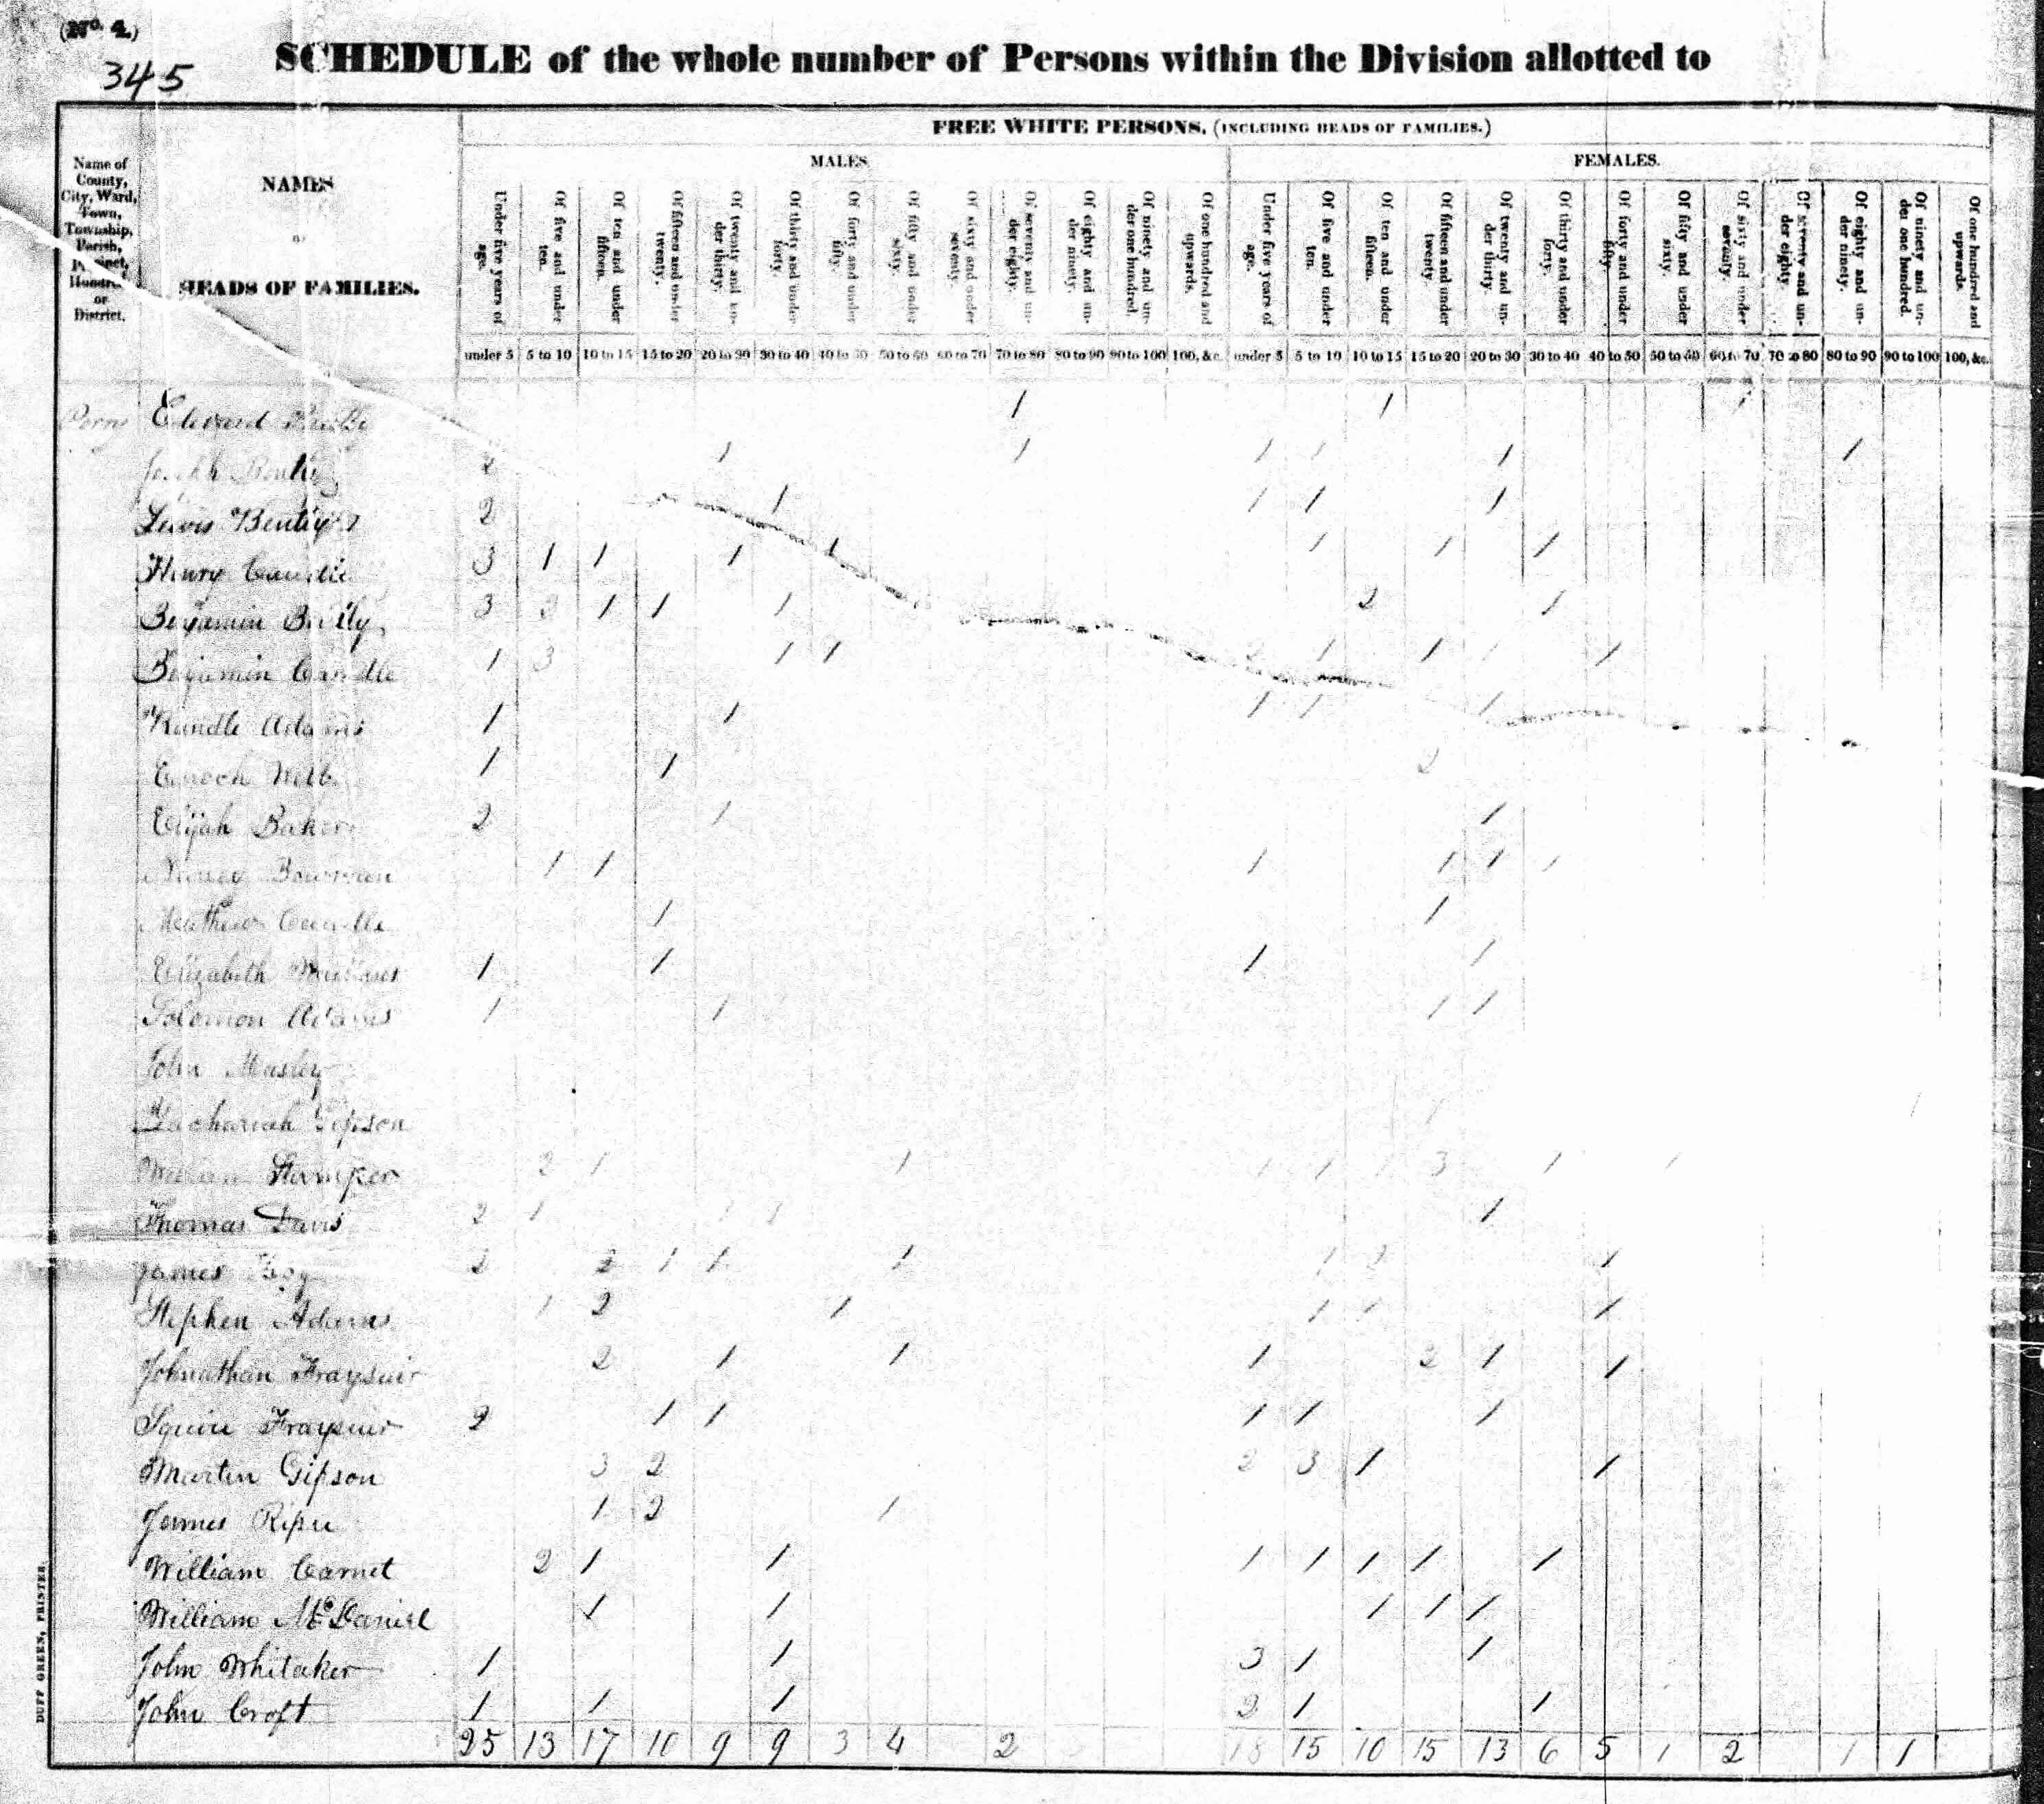 (No. 4.)
345
SCHEDULE of the whole number of Persons within the Division allotted to
FREE WHITE PERSONS, (INCLUDING HEADS OF FAMILIES.)
MALES. FEMALES.
Name of County, City, Ward, Town, Township, Parish, Precinct, Hundred, or District.
NAMES
OF
HEADS OF FAMILIES.
Under five years of age. Of five and under ten. Of ten and under fifteen. Of fifteen and under twenty. Of twenty and under thirty. Of thirty and under forty. Of forty and under fifty. Of fifty and under sixty. Of sixty and under seventy. Of seventy and under eighty. Of eighty and under ninety. Of ninety and under one hundred. Of one hundred and upwards. Under five years of age. Of five and under ten. Of ten and under fifteen. Of fifteen and under twenty. Of twenty and under thirty. Of thirty and under forty. Of forty and under fifty. Of fifty and under sixty. Of sixty and under seventy. Of seventy and under eighty. Of eighty and under ninety. Of ninety and under one hundred. Of one hundred and upwards.
under 5 5 to 10 10 to 15 15 to 20 20 to 30 30 to 40 40 to 50 50 to 60 60 to 70 70 to 80 80 to 90 90 to 100 100, &c. under 5 5 to 10 10 to 15 15 to 20 20 to 30 30 to 40 40 to 50 50 to 60 60 to 70 70 to 80 80 to 90 90 to 100 100, &c.
Perry Edward 1 1 1
2 1 1 1 1 1 1
Lewis 2 1 1 1 1
Henry 3 1 1 1 1 1 1 1
Benjamin 3 3 1 1 1 2 1
Benjamin Candle 1 3 1 1 2 1 1 1 1
Randle Adams 1 1 1 1 1
Enoch Webb 1 1 2
Elijah Baker 2 1 1
Nancy Bowman 1 1 1 1 1 1
1 1
Elizabeth 1 1 1 1
Solomon Adams 1 1 1 1
John
Zachariah Gipson 1 1
William Stamper 2 1 1 1 1 1 3 1 1
Thomas Davis 2 1 1 1 1
James 2 2 1 1 1 1 2 1
Stephen Adams 1 2 1 1 1 1
Johnathan Fraysuir 2 1 1 1 2 1 1
Squire Fraysuir 2 1 1 1 1 1
Martin Gipson 3 2 2 3 1 1
James 1 2 1
William Carnet 2 1 1 1 1 1 1 1
William McDaniel 1 1 1 1 1
John Whitaker 1 1 3 1 1
John Croft 1 1 1 2 1 1
25 13 17 10 9 9 3 4 2 18 15 10 15 13 6 5 1 2 1 1
DUFF GREEN, PRINTER.